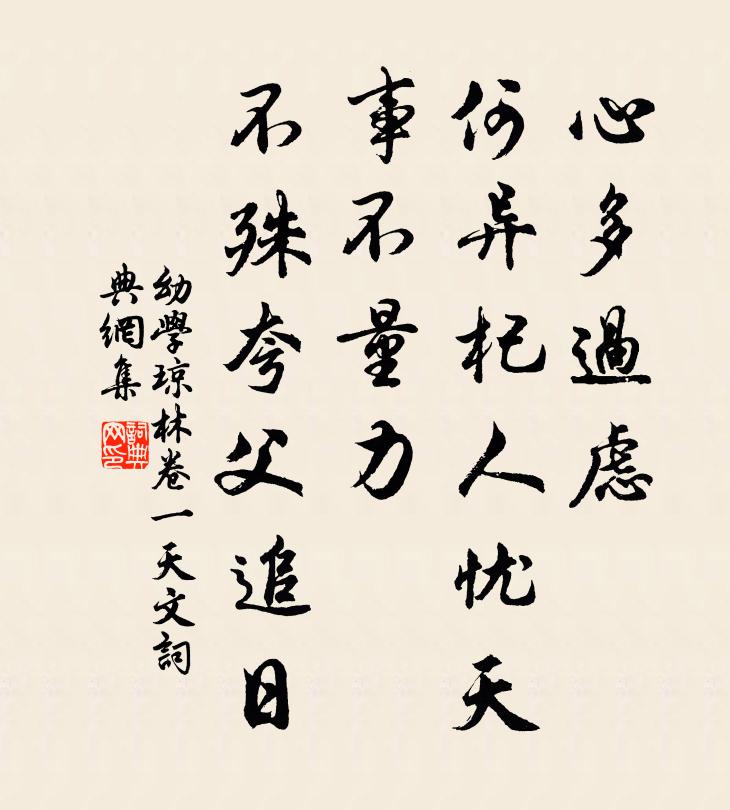 心多過慮
何异杞人忧天
事不量力
不殊夸父追日
幼學琼林卷一天文詞
典網集
詞典
网印